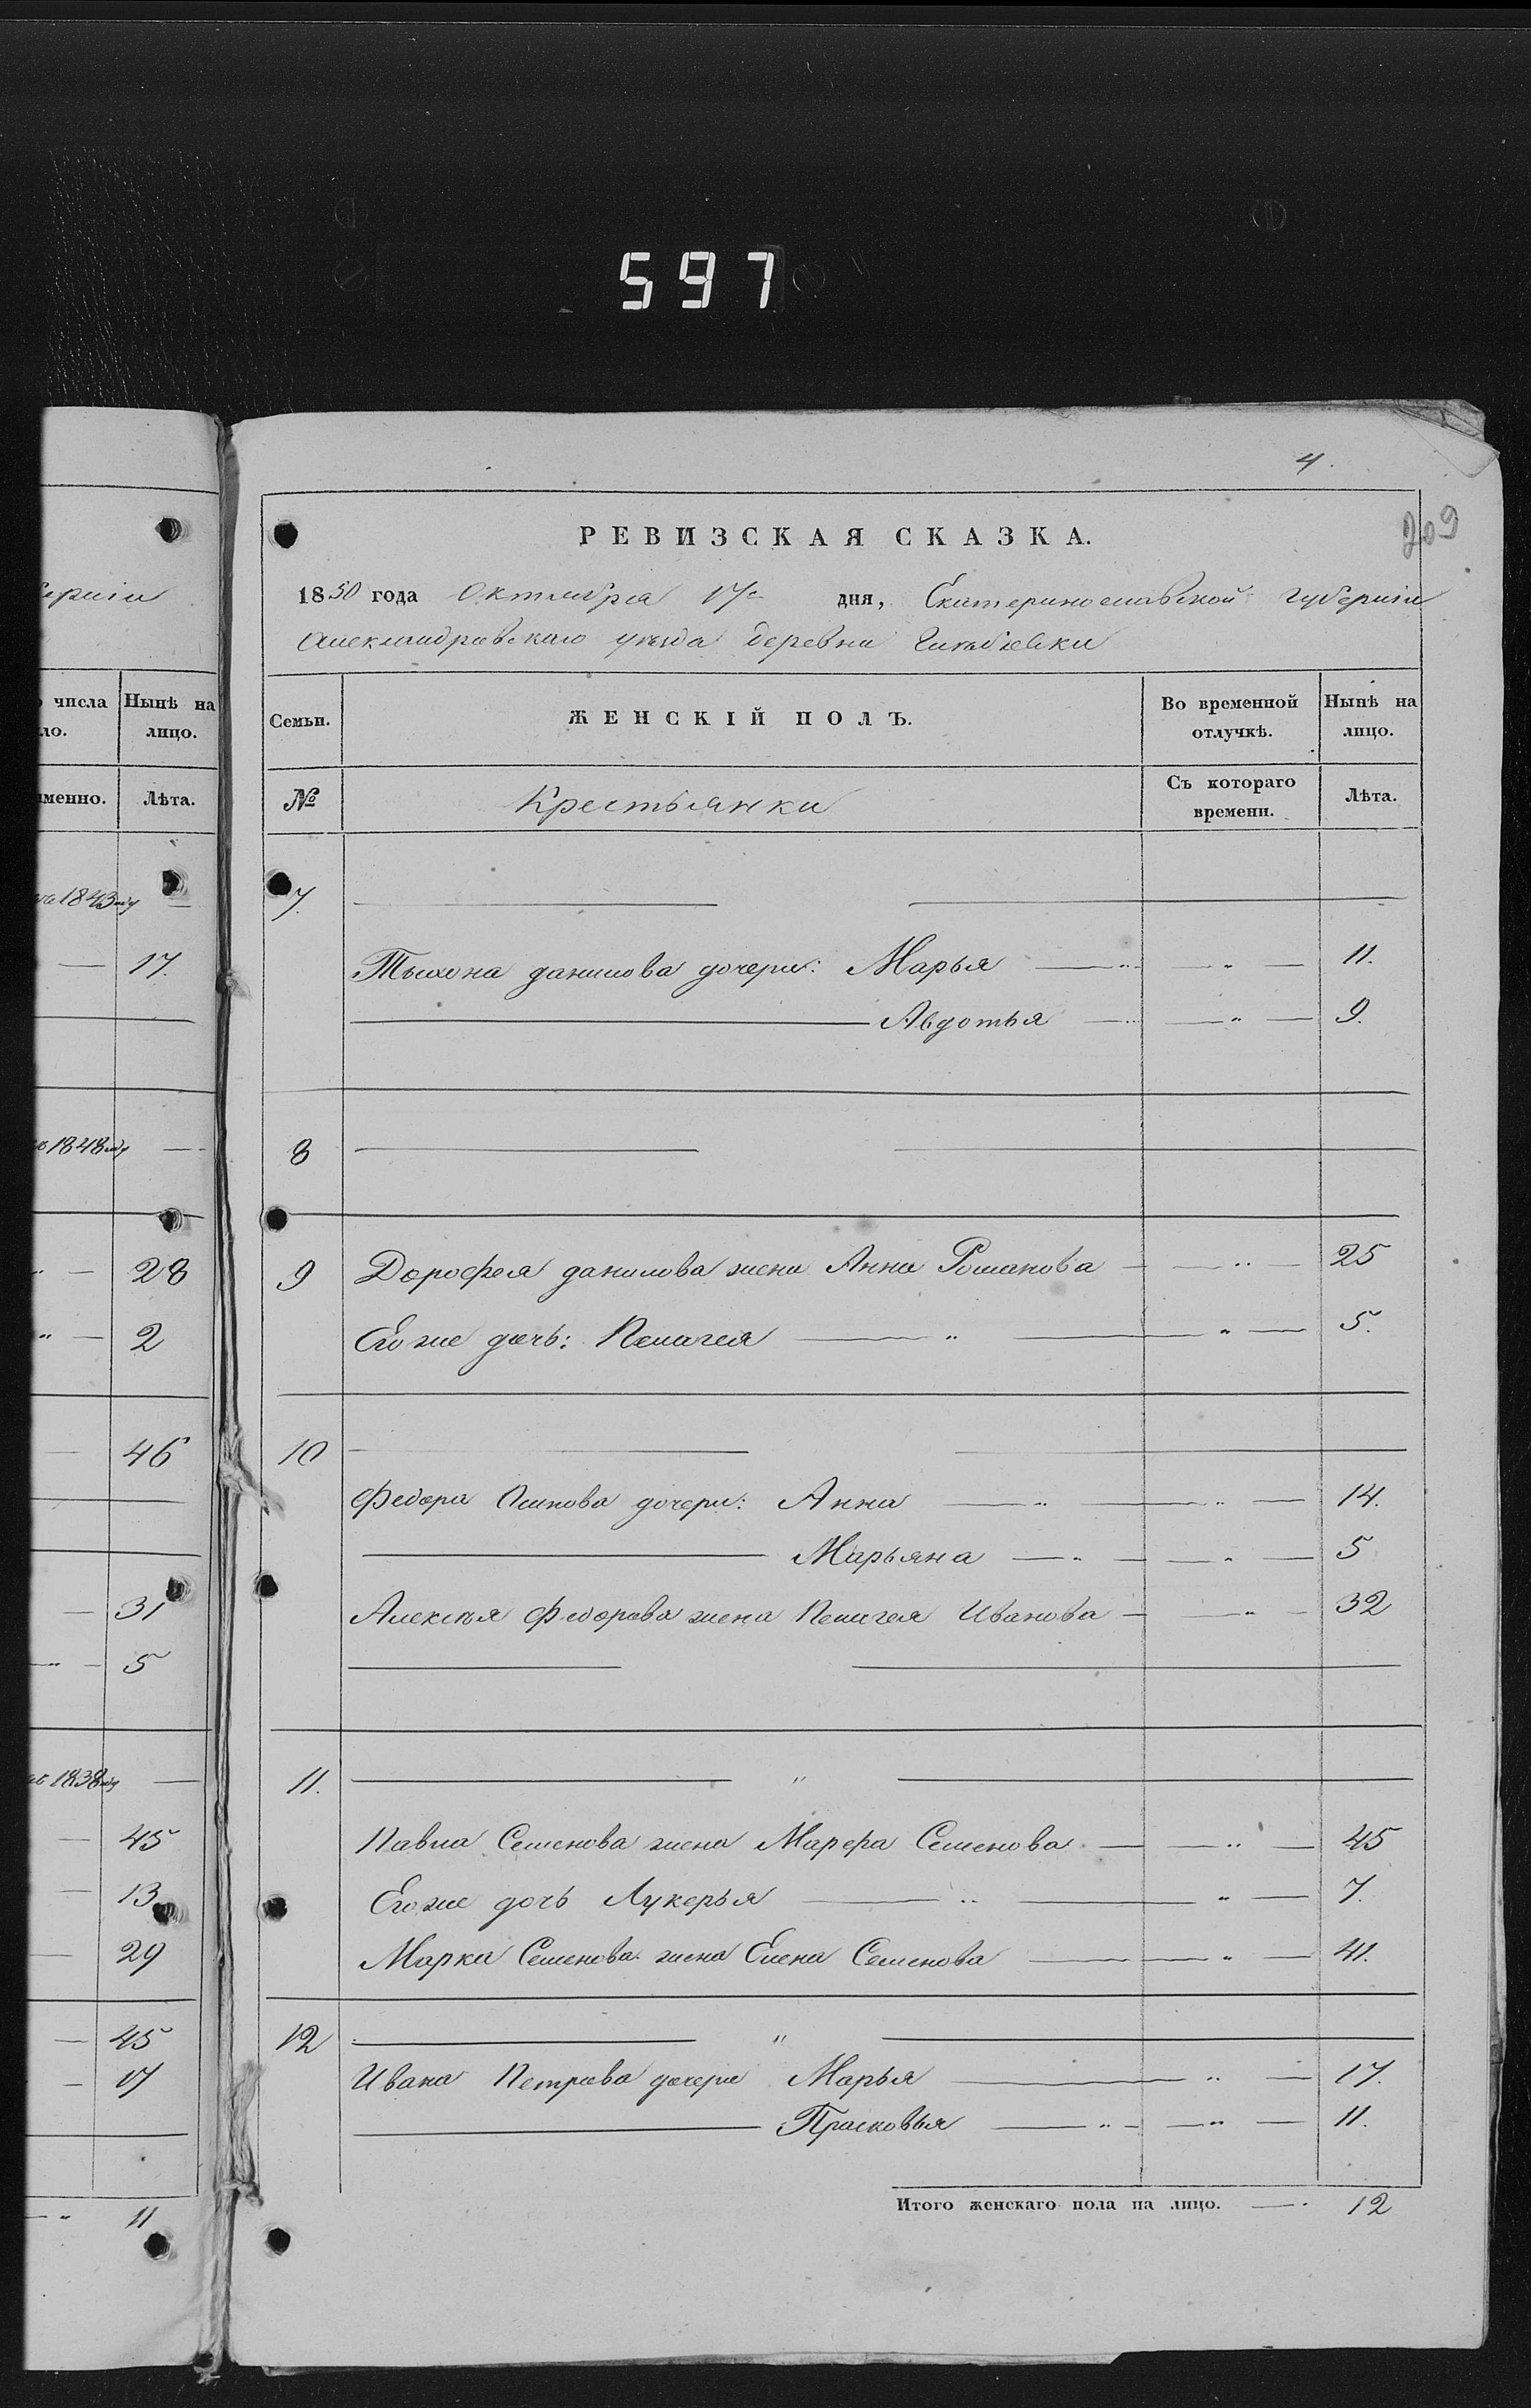 597
4.
209
РЕВИЗСКАЯ СКАЗКА.
1850 года Октября 17го дня, Екатеринославской губерніи
Александровскаго уѣзда деревни
Семьи. ЖЕНСКІЙ ПОЛЪ. Во временной отлучкѣ. Нынѣ на лицо.
№ Крестьянки Съ котораго времени. Лѣта.
7.
Тихона Данилова дочери: Марья — " — 11.
Авдотья — " — 9.
8
9 Дорофея Данилова жена Анна Романова — " — 25
Его же дочь: Пелагея — " — " — 5.
10
Федора Осипова дочери: Анна — " — " — 14.
Марьяна — " — " — 5
Алексѣя Федорова жена Пелагея Иванова — " — 32
11. "
Павла Семенова жена Марфа Семенова — " — 45
Его же дочь Лукерья — " — " — 7.
Марка Семенова жена Елена Семенова — " — 41.
12 "
Ивана Петрова дочери Марья — " — 17.
Прасковья — " — " — 11.
Итого женскаго пола на лицо. — 12
ерніи
числа Нынѣ на
ло. лицо.
именно. Лѣта.
1843
17.
1848
" — 28
" — 2
46
31
" — 5
1838
45
13
29
45
17
" 11